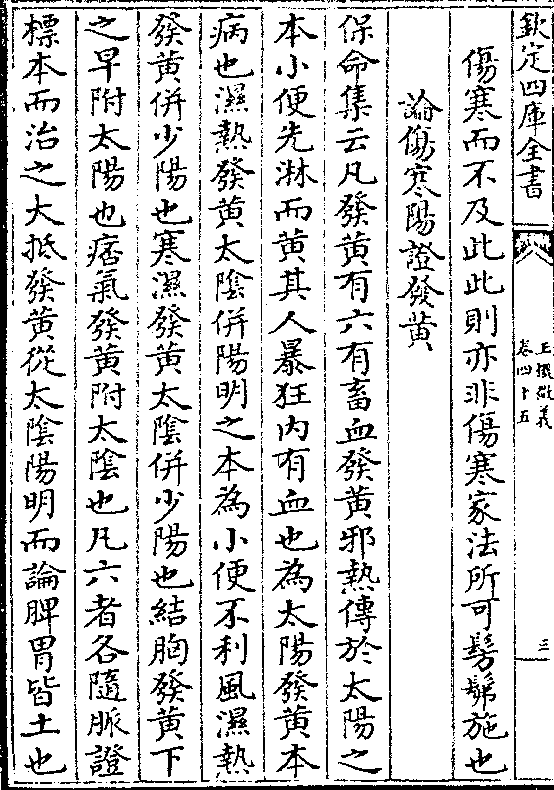 欽定四庫全書
玉機微義
卷四十五
三
傷寒而不及此此則亦非傷寒家法所可髣髴施也
論傷寒陽證發黄
保命集云凡發黄有六有畜血發黄邪熱傳於太陽之
本小便先淋而黄其人暴狂内有血也為太陽發黄本
病也濕熱發黄太陰併陽明之本為小便不利風濕熱
發黄併少陽也寒濕發黄太陰併少陽也結胸發黄下
之早附太陽也痞氣發黄附太陰也凡六者各隨脈證
標本而治之大抵發黄從太陰陽明而論脾胃皆土也